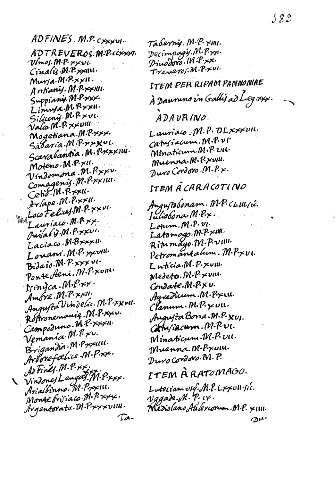 382
AD FINES. M.P. CXXXVI.
AD TREVEROS. M.P. CCXXXI.
Vlmos. M.P. XXVI.
Ciralis M.P. XXIIII.
Mursa. M.P. XXII.
Antianis. M.P. XXIIII.
Suppianis M.P. XXX.
Limusa M.P. XXII.
Silicenis M.P. XVI.
Valco. M.P. XXVIII.
Mogetiana. M.P. XXX.
Sabaria. M.P. XXXVI.
Scaravantia. M.P. XXXIIII.
Moteno. M.P. XII.
Vindomona. M.P. XXV.
Comagenis. M.P. XXIIII.
Cetio. M.P. XXX.
Arlape. M.P. XXII.
Loco Felicis. M.P. XXVI.
Lauriaco. M.P. XX.
Ovilavis. M.P. XXVI.
Laciaco. M.P. XXXII.
Iovavi. M.P. XXVIII.
Bidaio. M.P. XXXIII.
Ponte Aeni. M.P. XVIII.
Isinisca. M.P. XX.
Ambre. M.P. XXXII.
Augusta Vindelic. M.P. XXVII.
Rostronemavis. M.P. XXV.
Campoduno. M.P. XXXII.
Vemania. M.P. XV.
Brigantia. M.P. XXIIII.
Arbore felice. M.P. XX.
Ad Fines. M.P. XX.
Vindonissa M.P. XXX.
Arialbinno. M.P. XXIII.
Monte brisiaco. M.P. XXX.
Argentorato. M.P. XXXVIII.
Ta-
Tabernis. M.P. XIIII.
Decimpagis. M.P. XX.
Divodoro. M.P. XX.
Treveros. M.P. XVI.
ITEM PER RIPAM PANNONIAE
À Dauruno in Gallijs ad Leg. XXX.
À DAURINO
Lauriaco. M.P. DLXXXVII.
Catusiacum. M.P. VI.
Minaticum. M.P. VII.
Muenna. M.P. XVIII.
Duro Cortoro. M.P. X.
ITEM À CARACOTINO
Augustobonam. M.P. CLIII. sic.
Iuliobona. M.P. X.
Lotum. M.P. VI.
Latomago. M.P. XIII.
Ritumago. M.P. VIIII.
Petromantalum. M.P. XVI.
Lutitia. M.P. XVIII.
Medeto. M.P. XVIII.
Condate. M.P. XV.
Agredicum. M.P. XVIII.
Clanum. M.P. XVII.
Augusta Bona. M.P. XVI.
Catusiacum. M.P. VI.
Minaticum. M.P. VII.
Muenna. M.P. XVIII.
Duro Cortoro. M.P.
ITEM À RATOMAGO.
Luteciam usq. M.P. LXXVII. sic.
Uggade. M.P. IX.
Mediolano Aulercorum. M.P. XIIII.
Du-